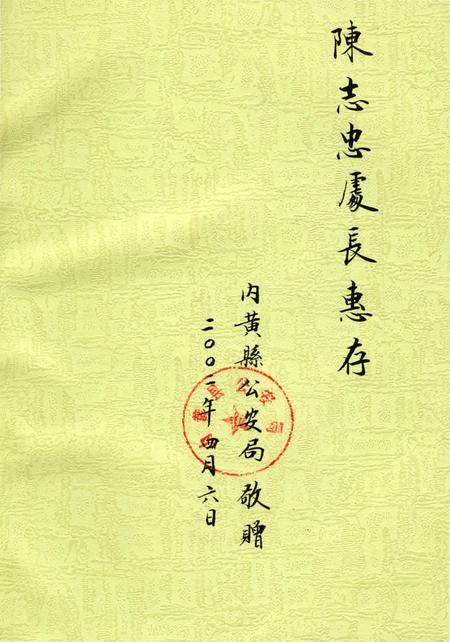 陳志忠處長惠存
内黄縣公安局敬贈
二〇〇二年四月六日
内黄县公安局